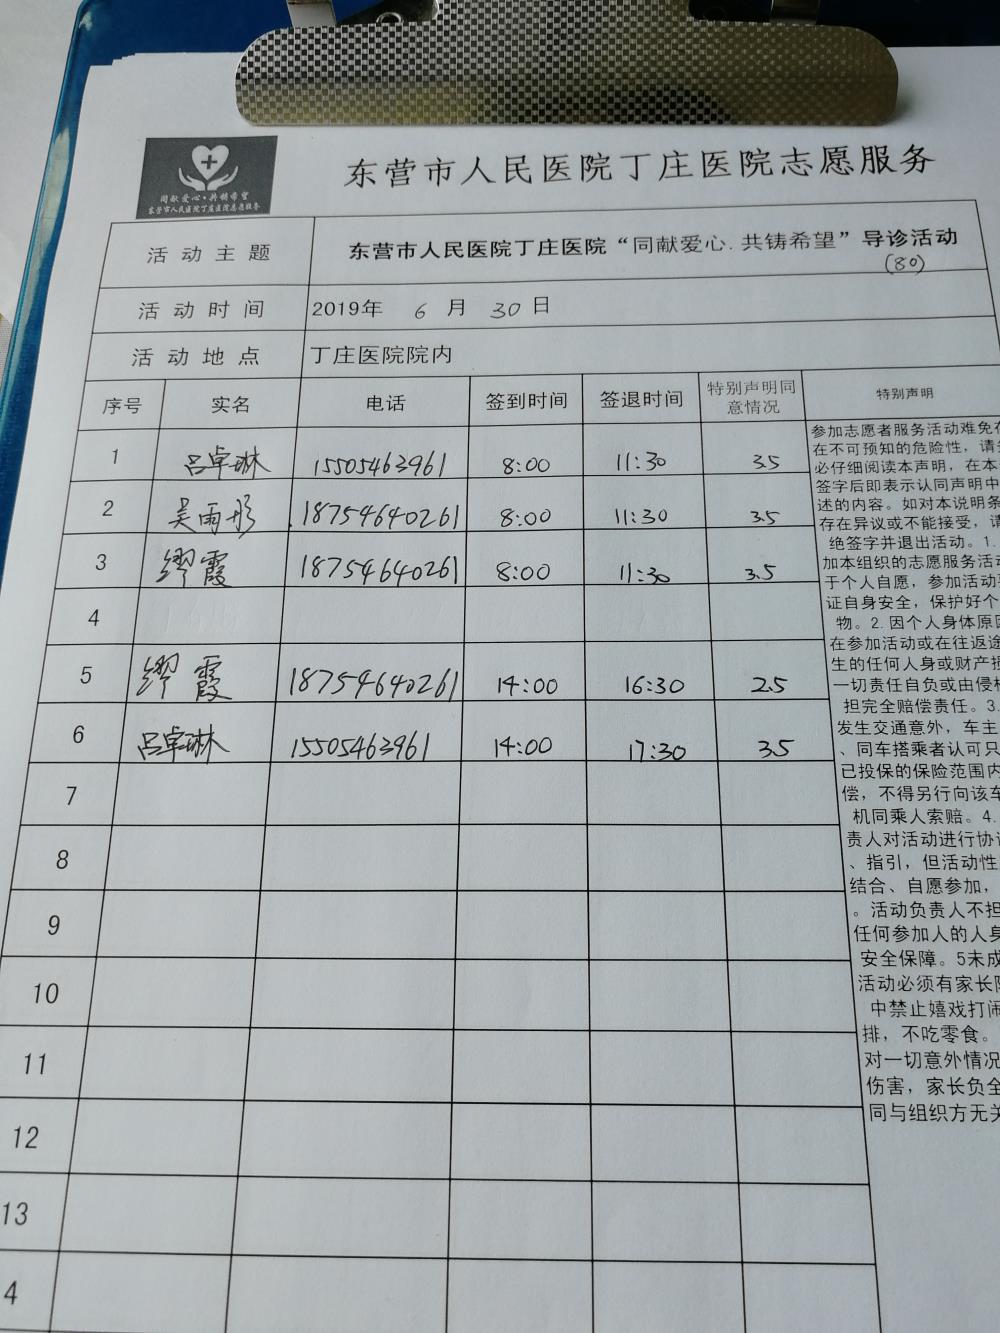 同献爱心·共铸希望
东营市人民医院丁庄医院志愿服务
东营市人民医院丁庄医院志愿服务
活动主题 东营市人民医院丁庄医院“同献爱心.共铸希望”导诊活动
(80)
活动时间 2019年 6 月 30 日
活动地点 丁庄医院院内
序号 实名 电话 签到时间 签退时间 特别声明同意情况 特别声明
1 吕卓琳 15505463961 8:00 11:30 3.5
2 吴雨彤 18754640261 8:00 11:30 3.5
3 缪霞 18754640261 8:00 11:30 3.5
4
5 缪霞 18754640261 14:00 16:30 2.5
6 吕卓琳 15505463961 14:00 17:30 3.5
7
8
9
10
11
12
13
4
参加志愿者服务活动难免存
在不可预知的危险性，请务
必仔细阅读本声明，在本
签字后即表示认同声明中
述的内容。如对本说明条
存在异议或不能接受，请
绝签字并退出活动。1.
加本组织的志愿服务活动
于个人自愿，参加活动
证自身安全，保护好个
物。2.因个人身体原因
在参加活动或在往返途
生的任何人身或财产损
一切责任自负或由侵权
担完全赔偿责任。3.
发生交通意外，车主
、同车搭乘者认可只
已投保的保险范围内
偿，不得另行向该车
机同乘人索赔。4.
责人对活动进行协调
、指引，但活动性
结合、自愿参加，
。活动负责人不担
任何参加人的人身
安全保障。5未成
活动必须有家长陪
中禁止嬉戏打闹
排，不吃零食。
对一切意外情况
伤害，家长负全
同与组织方无关